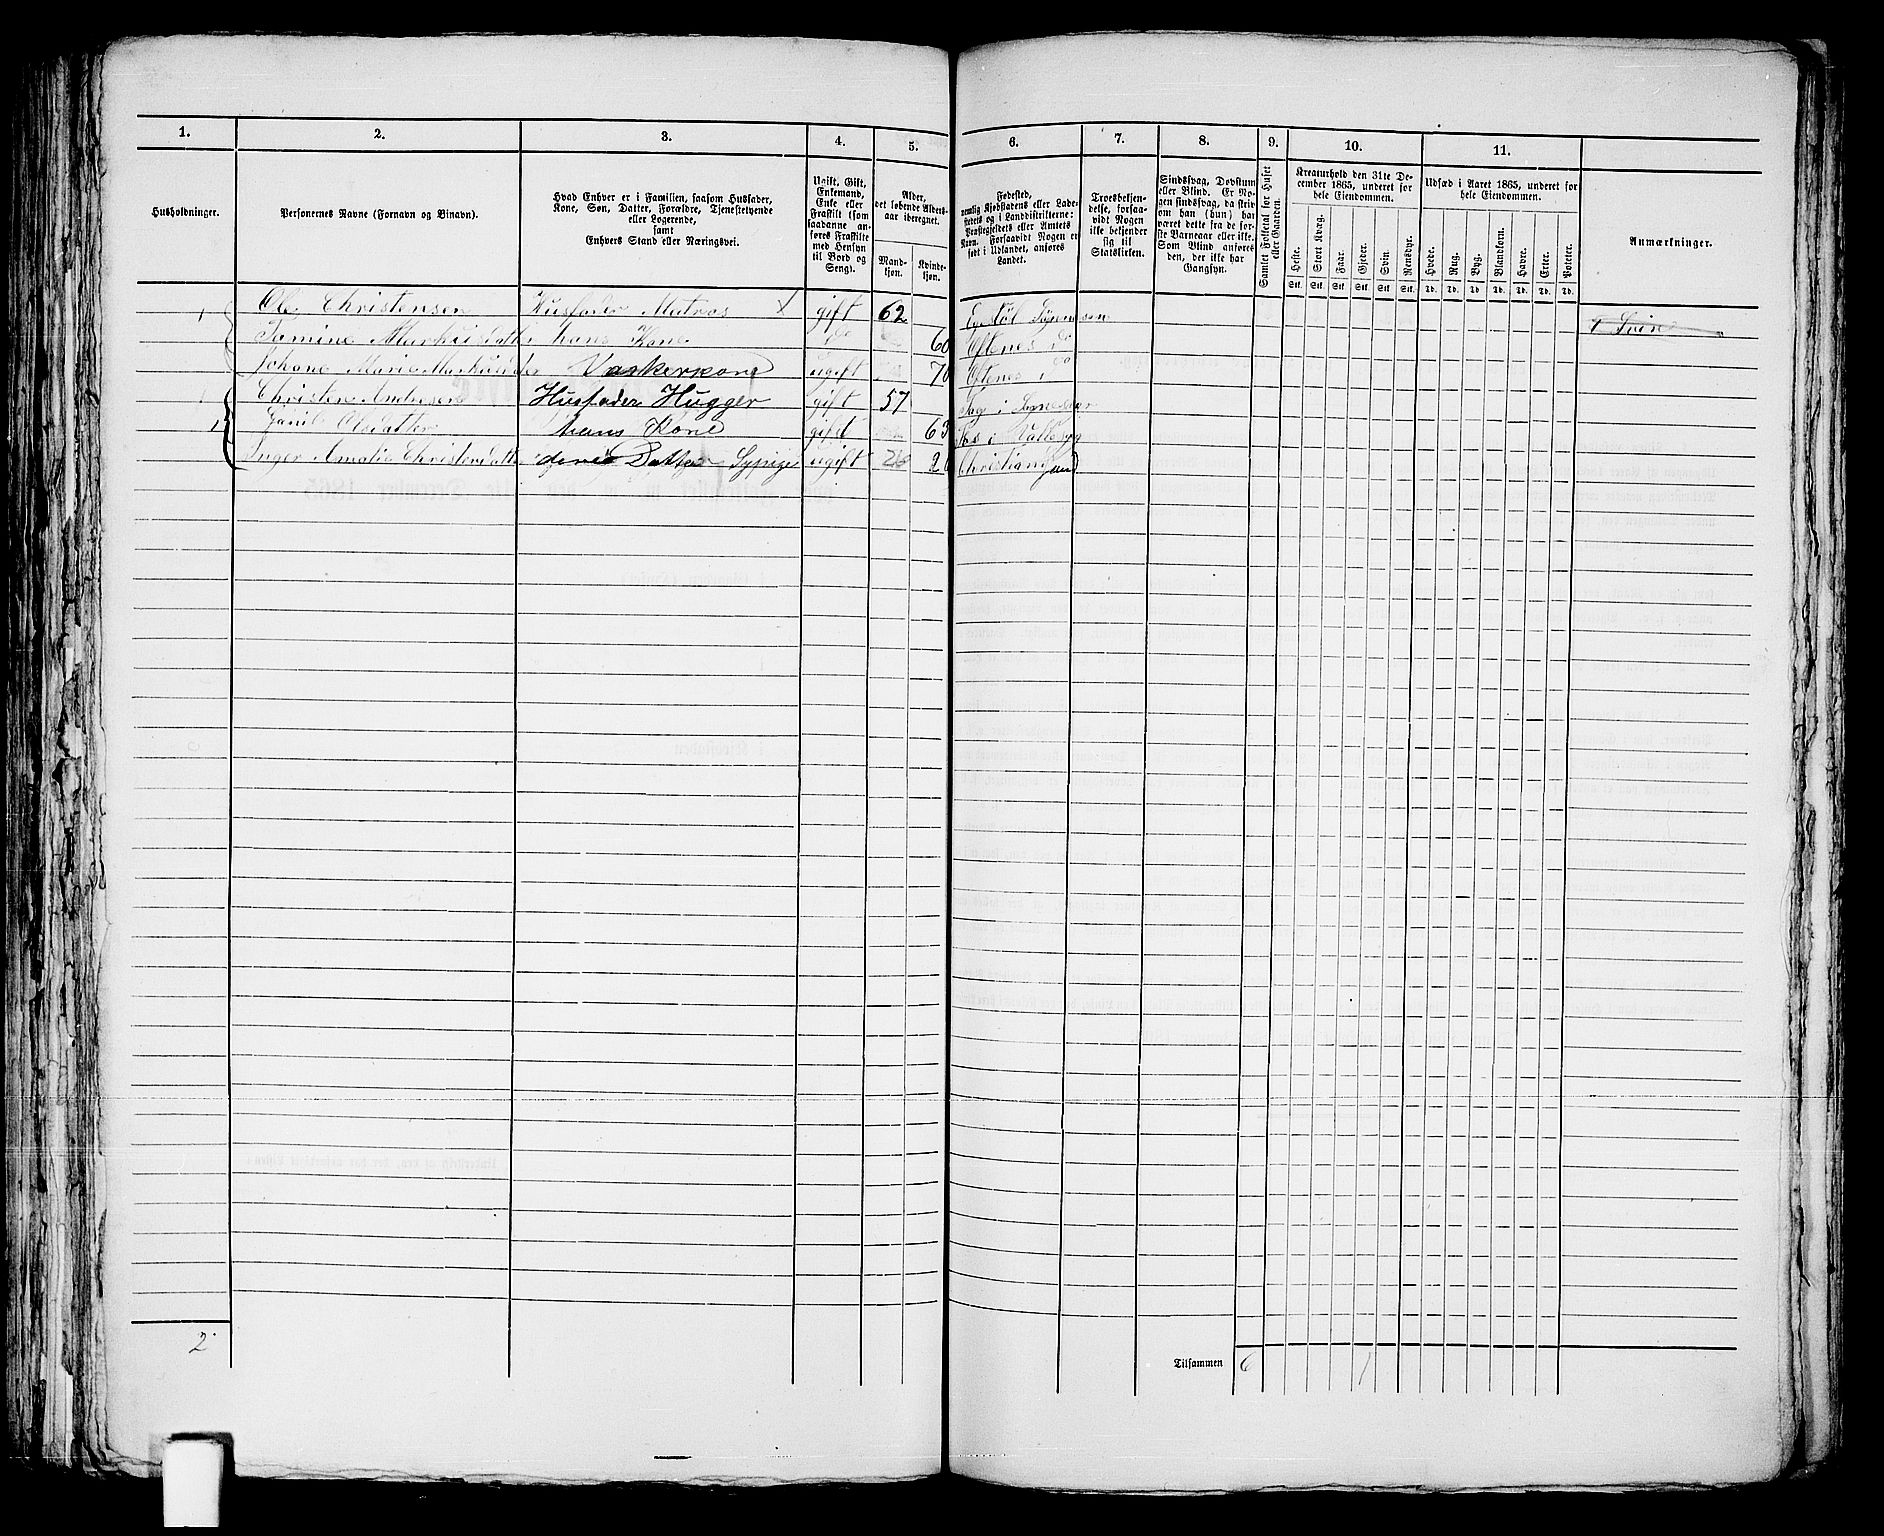 1. 2. 3. 4. 5. 6. 7. 8. 9. 10. 11.
Husholdninger.
Personernes Navne (Fornavn og Binavn).
Hvad Enhver er i Familien, saasom Husfader,
Kone, Søn, Datter, Forældre, Tjenestetyende
eller Logerende,
samt
Enhvers Stand eller Næringsvei.
Ugift, Gift,
Enkemand,
Enke eller
Fraskilt (som
saadanne an-
føres Fraskilte
med Hensyn
til Bord og
Seng).
Alder,
det løbende Alders-
aar iberegnet.
Mand-
kjøn.
Kvinde-
kjøn.
Fødested,
nemlig Kjøbstadens eller Lade-
stedets og i Landdistrikterne:
Præstegjeldets eller Amtets
Navn. Forsaavidt Nogen er
født i Udlandet, anføres
Landet.
Troesbekjen-
delse, forsaa-
vidt Nogen
ikke bekjender
sig til
Statskirken.
Sindssvag, Døvstum
eller Blind. Er No-
gen sindssvag, da skriv
om han (hun) har
været dette fra de før-
ste Barneaar eller ikke.
Som Blind anføres
den, der ikke har
Gangsyn.
Samlet Folketal for Huset
eller Gaarden.
Kreaturhold den 31te De-
cember 1865, underet for
hele Eiendommen.
Heste. Stort Kvæg. Faar. Gjeder. Svin. Rensdyr.
Stk. Stk. Stk. Stk. Stk. Stk.
Udsæd i Aaret 1865, underet for
hele Eiendommen.
Hvede. Rug. Byg. Blandkorn. Havre. Erter. Poteter.
Td. Td. Td. Td. Td. Td. Td.
Anmærkninger.
1 Ole Christensen Husfader Matros gift 62
Tomine Markusdatter hans Kone do 60 Oftenes i do
Johane Marie Vaskerkone ugift 70 Oftenes i do
Christen Andresen Husfader Hugger gift 57
1 Olsdatter hans Kone gift 63
Inger Amalie Christensdatter deres Datter Sypige ugift 26 26 Christiansand
1 Svin
2
Tilsammen 6 1